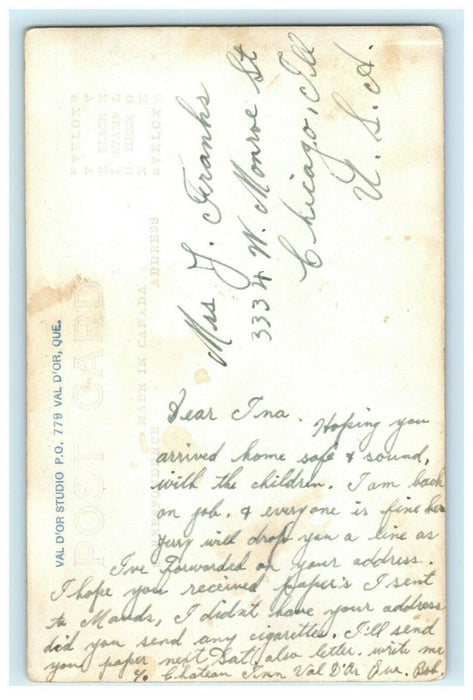 Mrs J. Franks
3334 W. Monroe St
Chicago, Ill
U. S. A.
VAL D'OR STUDIO P.O. 779 VAL D'OR, QUE.
POST CARD
MADE IN CANADA
ADDRESS
CORRESPONDENCE
Dear Ina. Hoping you
arrived home safe & sound,
with the children. I am back
on job. & everyone is fine here
Jerry will drop you a line as
I've Forwarded on your address.
I hope you received paper's I sent
to Mauds, I didn't have your address
did you send any cigarettes. I'll send
you paper next Sat. also letter. write me
℅ Chateau Inn Val D'Or Que. Bob